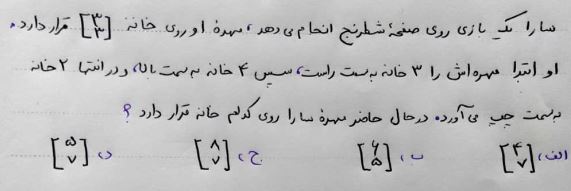 سارا یک بازی روی صفحهٔ شطرنج انجام می دهد، مهرهٔ او روی خانه [۳ ۳] قرار دارد.
او ابتدا مهره اش را ۳ خانه به سمت راست، سپس ۴ خانه به سمت بالا، و در انتها ۲ خانه
به سمت چپ می آورد. در حال حاضر مهرهٔ سارا روی کدام خانه قرار دارد؟
الف) [۴ ۷] ب) [۶ ۵] ج) [۸ ۷] د) [۵ ۷]